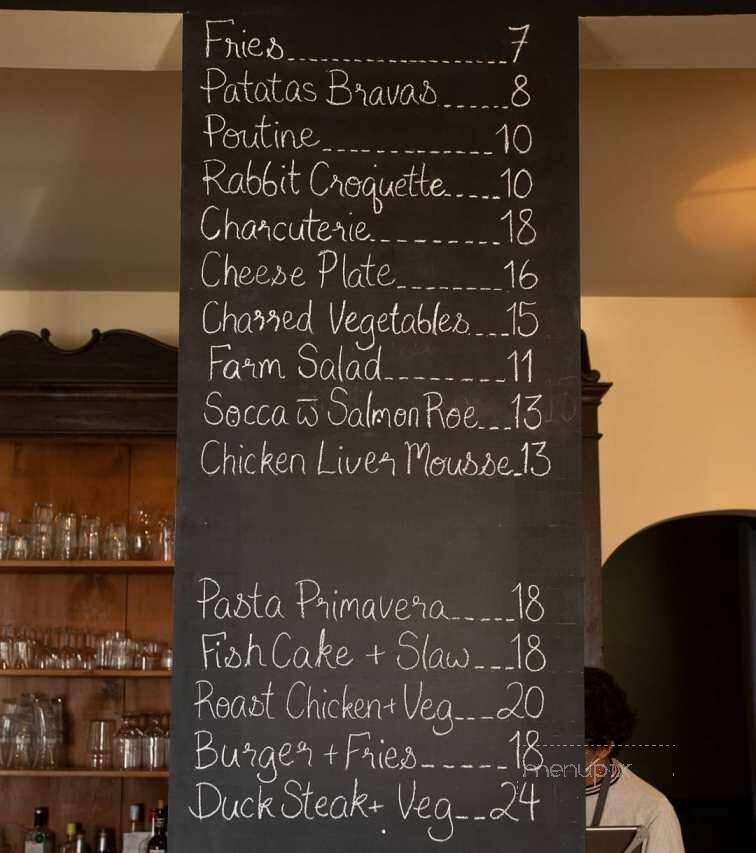 Fries 7
Patatas Bravas 8
Poutine 10
Rabbit Croquette 10
Charcuterie 18
Cheese Plate 16
Charred Vegetables 15
Farm Salad 11
Socca w̅ Salmon Roe 13
Chicken Liver Mousse 13
Pasta Primavera 18
Fish Cake + Slaw 18
Roast Chicken + Veg 20
Burger + Fries 18
menupix
Duck Steak + Veg 24